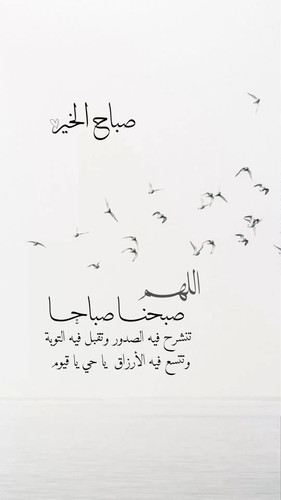 صباح الخير
اللهم
صبحنا صباحا
تنشرح فيه الصدور وتقبل فيه التوبة
وتتسع فيه الأرزاق يا حي يا قيوم